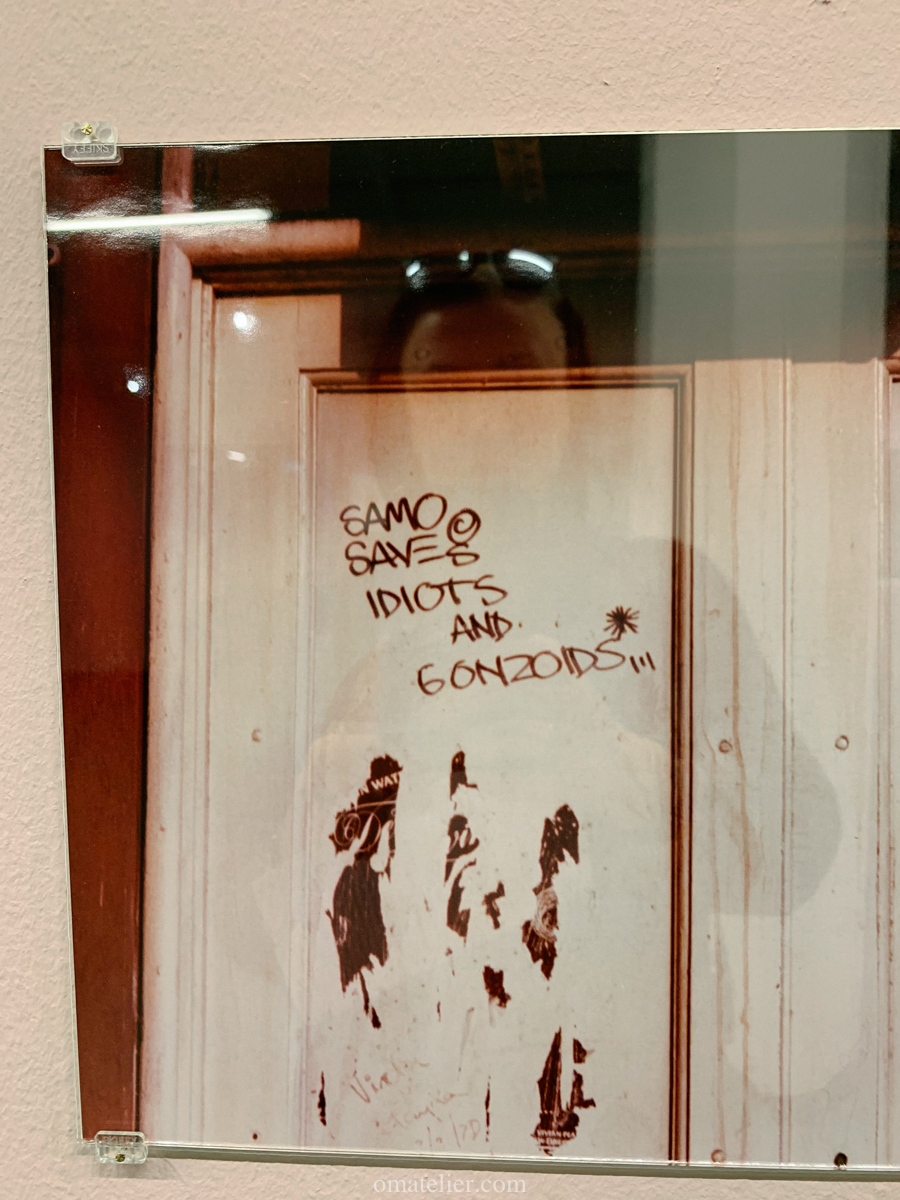 SAMO©
SAVES
IDIOTS
AND
GONZOIDS...
omatelier.com